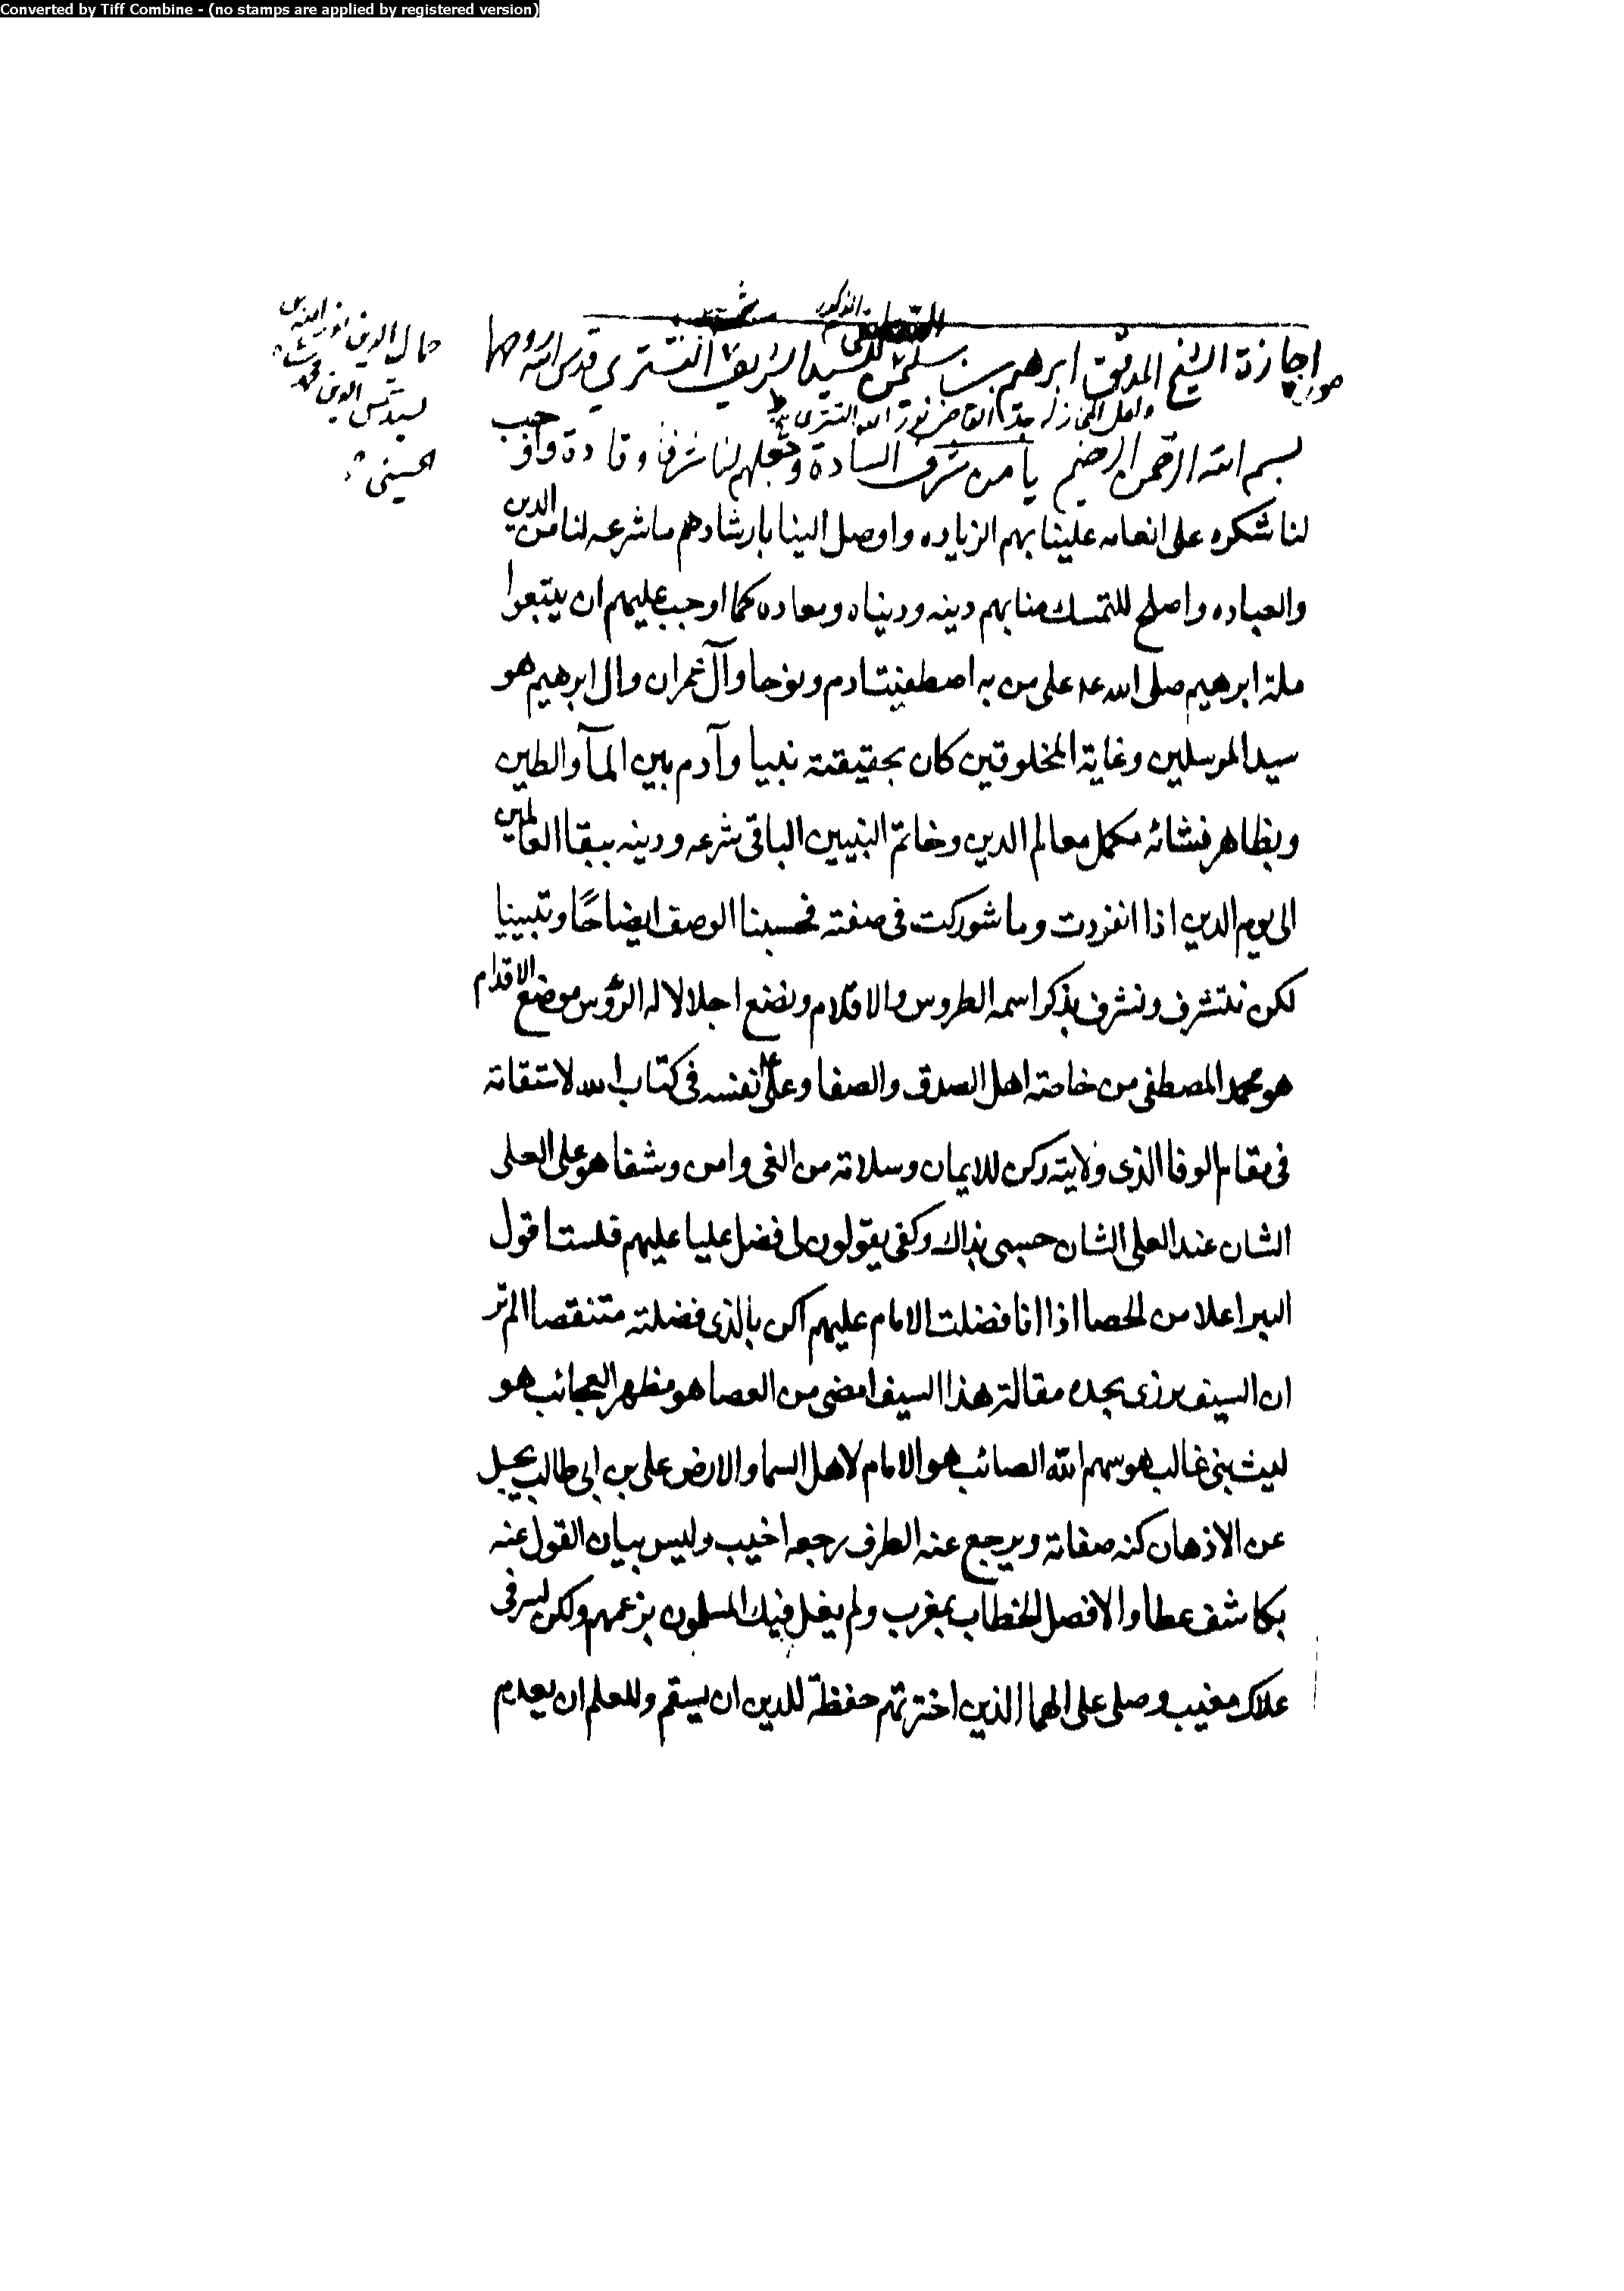 Converted by Tiff Combine - (no stamps are applied by registered version)
القطيفي المذكور
صورة اجازة الشيخ المدقق ابرهيم بن سليمن للسيد الشريف التستري قدس الله روحهما
ولعل المجاز له جد القاضي نور الله التستري
جمال الدين نور الله بن
لسيد شمس الدين محمد شاه
الحسيني
بسم الله الرحمن الرحيم يا من شرف السادة وجعلهم لنا شرفا وقادة واوجب
لنا شكره على انعامه علينا بهم الزياده واوصل الينا بارشادهم ما شرعه لنا من الدين
والعباده واصلح للتمسك منا بهم دينه ودنياه ومعاده كما اوجب عليهم ان يتبعوا
ملة ابرهيم صلى الله على من به اصطفيت ادم ونوحا وآل عمران وال ابرهيم هو
سيد المرسلين وغاية المخلوقين كان بحقيقته نبيا وآدم بين المآ والطين
وبظاهر نشاته مكمل معالم الدين وخاتم النبيين الباقى شرعه ودينه ببقا العالمين
الى يوم الدين اذا انفردت وما شوركت فى صفته فحسبنا الوصف ايضاحًا وتبيينا
لكن نتشرف ونشرف بذكر اسمه الطروس والاقلام ونضع اجلالا له الرؤس موضع الاقدام
هو محمد المصطفى من خاصته اهل الصدق والصفا وعلى نفسه فى كتاب الله لاستقاته
فى مقام الوفا الذى ولايته ركن للايمان وسلامة من الغى وامن وشفا هو على العلى
الشان عند العلى الشان حسبى بذاك وكفى يقولون لى فضل عليا عليهم فلست اقول
التبر اعلا من الحصا اذا انا فضلت الامام عليهم اكن بالذى فضلته متنقصا الم تر
ان السيف يزرى بحده مقالة هذا السيف امضى من العصا هو مظهر العجائب هو
ليث بنى غالب هو سهم الله الصائب هو الامام لاهل السما والارض على بن ابى طالب يجل
عن الاذهان كنه صفاته ويرجع عنه الطرف رجعه اخيب وليس بيان القول عنه
بكاشف عطا والا فصل الخطاب بمغرب ولم يغل فيك المسلمون بزعمهم ولكن لسر فى
علاك مغيب وصلى على الهما الذين اخترتهم حفظة للدين ان يسقم وللعلم ان يعدم